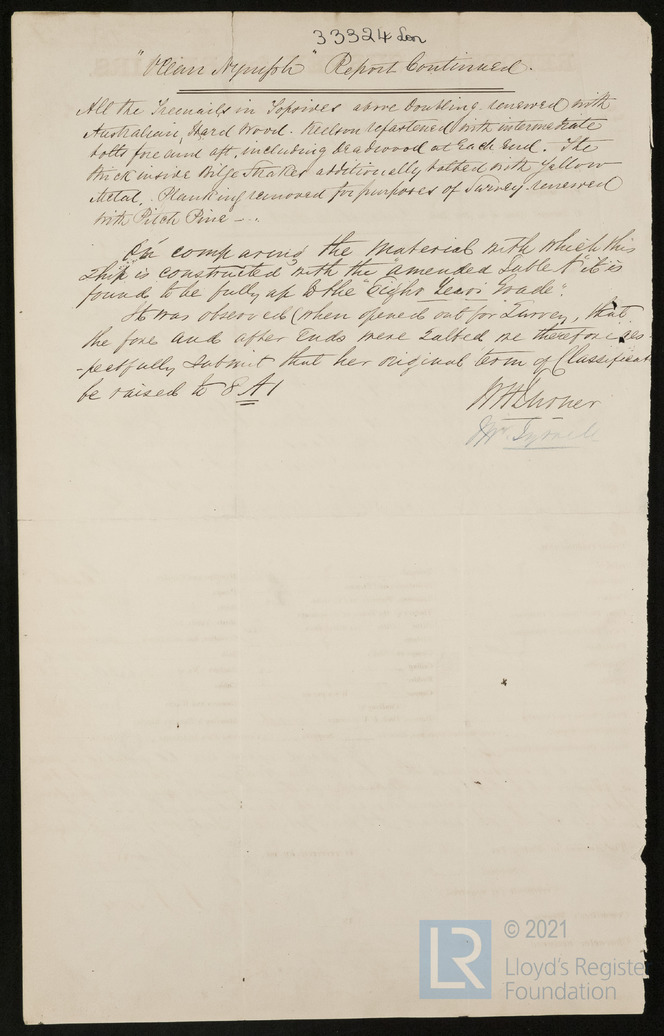 33324 Lon
"Ocean Nymph" Report Continued.
All the Treenails in Topsides above Doubling renewed with
Australian Hard Wood. Keelson refastened with intermediate
bolts fore and aft, including deadwood at each end. The
thick inside Bilge Strakes additionally bolted with Yellow
Metal. Planking removed for purposes of Survey renewed
with Pitch Pine -..
On comparing the Material with which this
Ship is constructed with the "amended Table A" it is
found to be fully up to the "Eight Years Grade".
It was observed (when opened out for Survey, that
the fore and after Ends were Salted we therefore res
-pectfully submit that her original term of Classificat
be raised to 8 A 1
© 2021
LR
Lloyd's Registe
Foundation